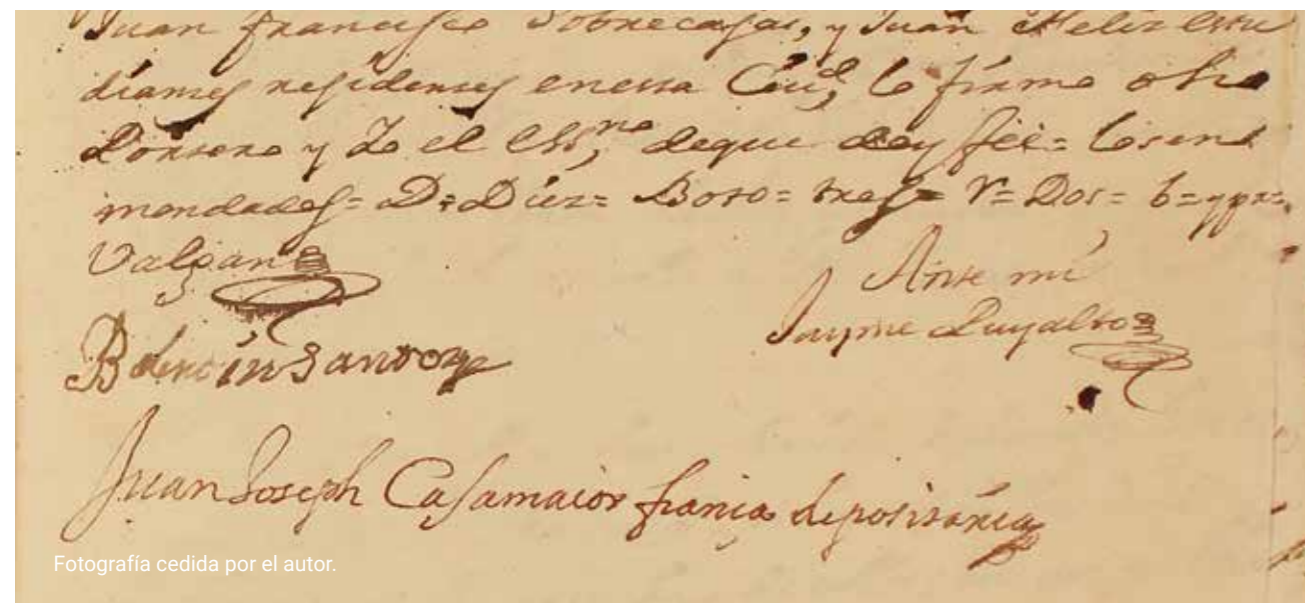 Juan francisco Sobrecasas, y Juan Melez estu
diantes residentes en essa Ciud. lo firmo otro
y Yo el Ess.no de que doy fee= los en
mendados= D= Diez= Boto= tres= r= Dos= b=
Valgan
Ante mi
Jayme Puyalto
Santon
Juan Joseph Casamaior francia depositario
Fotografía cedida por el autor.